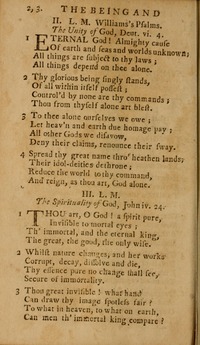 2, 3. THE BEING AND
II. L. M. Williams's Psalms.
The Unity of God, Deut. vi. 4.
1 ETERNAL God! Almighty cause
Of earth and seas and worlds unknown;
All things are subject to thy laws;
All things depend on thee alone.
2 Thy glorious being singly stands,
Of all within itself possest;
Control'd by none are thy commands;
Thou from thyself alone art blest.
3 To thee alone ourselves we owe;
Let heav'n and earth due homage pay;
All other Gods we disavow,
Deny their claims, renounce their sway.
4 Spread thy great name thro' heathen lands;
Their idol-deities dethrone;
Reduce the world to thy command,
And reign, as thou art, God alone.
III. L. M.
The Spirituality of God, John iv. 24.
1 THOU art, O God! a spirit pure,
Invisible to mortal eyes;
Th' immortal, and the eternal king,
The great, the good, the only wise.
2 Whilst nature changes, and her works
Corrupt, decay, dissolve and die,
Thy essence pure no change shall see,
Secure of immortality.
3 Thou great invisible! what hand
Can draw thy image spotless fair?
To what in heaven, to what on earth,
Can men th' immortal king compare?